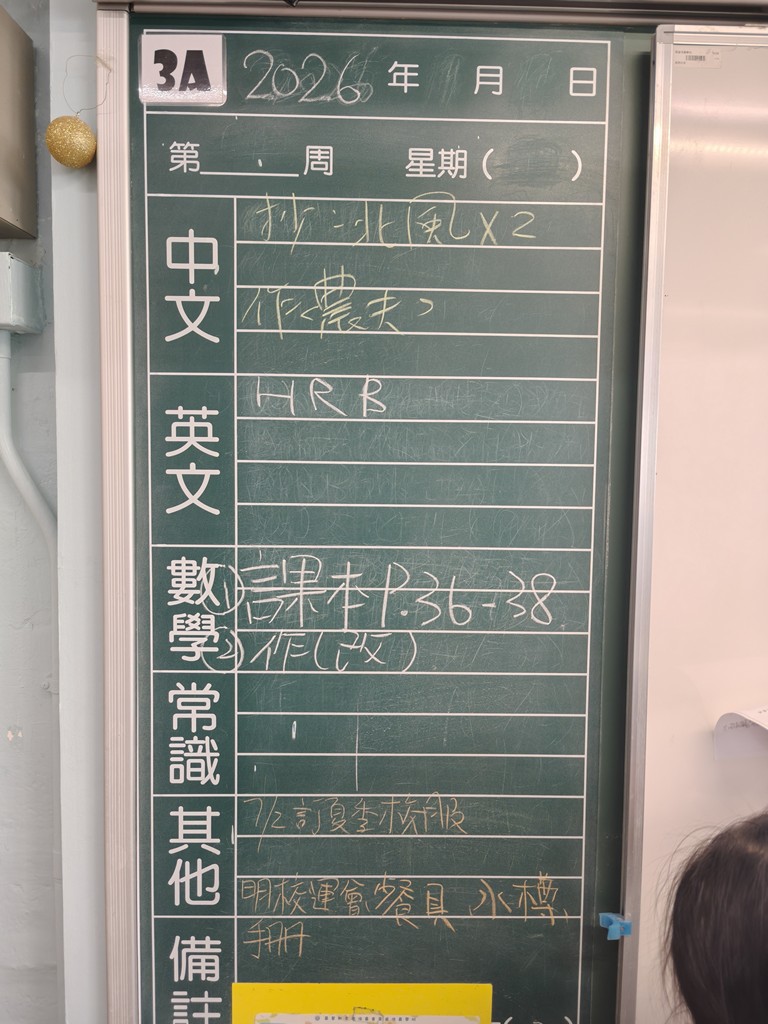 3A 2026 年 月 日
第 周 星期( )
中文
抄:北風x2
作<農夫>
英文
HRB
數學
①課本P.36-38
②作(改)
常識
其他
7/2訂夏季校服
明校運會,餐具,水樽,
手冊
備註